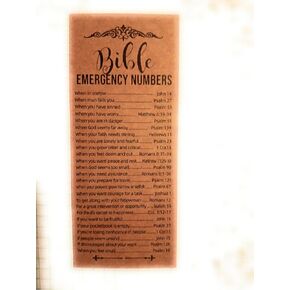 Bible
EMERGENCY NUMBERS
When in sorrow John 14
When men fail you Psalm 27
When you have sinned Psalm 51
When you have worry Matthew 6:19-34
When you are in danger Psalm 91
When God seems far away Psalm 139
When your faith needs stirring Hebrews 11
When you are lonely and fearful Psalm 23
When you grow bitter and critical 1 Cor 13
When you feel down and out Romans 8:31
When you want peace and rest Matthew 11:25-30
When the world seems bigger than God Psalm 90
When you need assurance Romans 8:1-30
When you leave home Psalm 121
When your prayers grow narrow or selfish Psalm 67
When you want courage for a task Joshua 1
To get along with your fellowmen Romans 12
For a great invention or opportunity Isaiah 55
For Paul's secret to happiness Col. 3:12-17
If you want to be fruitful John 15
If your pocketbook is empty Psalm 37
If you're losing confidence in people 1 Cor 13
If people seem unkind John 15
If discouraged about your work Psalm 126
When you feel small Psalm 19